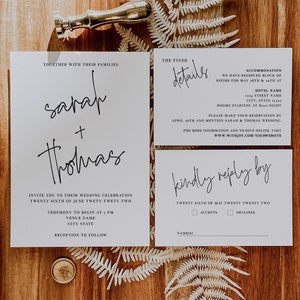 TOGETHER WITH THEIR FAMILIES
sarah
+
thomas
INVITE YOU TO THEIR WEDDING CELEBRATION
TWENTY SIXTH OF JUNE TWENTY-TWENTY TWO
CEREMONY TO BEGIN AT 3 PM
VENUE NAME
CITY STATE
RECEPTION TO FOLLOW
THE FINER
details
ACCOMMODATION
WE HAVE RESERVED BLOCK OF
ROOMS FOR MAY 19TH - 21ST
HOTEL NAME
STREET NAME
CITY, STATE
ROOMS STARTING AT $200/NIGHT
PLEASE MAKE YOUR RESERVATION BY
APRIL 20TH AND MENTION SARAH & THOMAS WEDDING.
FOR MORE INFORMATION AND TO RSVP ONLINE, VISIT
WWW.WITHJOY.COM/YOURWEBSITE
kindly reply by
TWENTY SIX OF MAY TWENTY TWENTY TWO
ACCEPTS DECLINES
NAME(S)